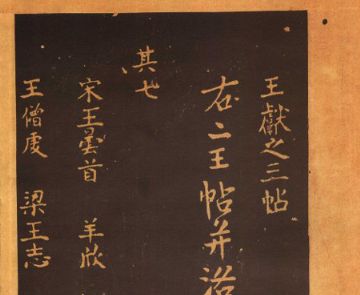 王獻之三帖
右二王帖并
其七
宋王曇首 羊欣
王僧虔 梁王志